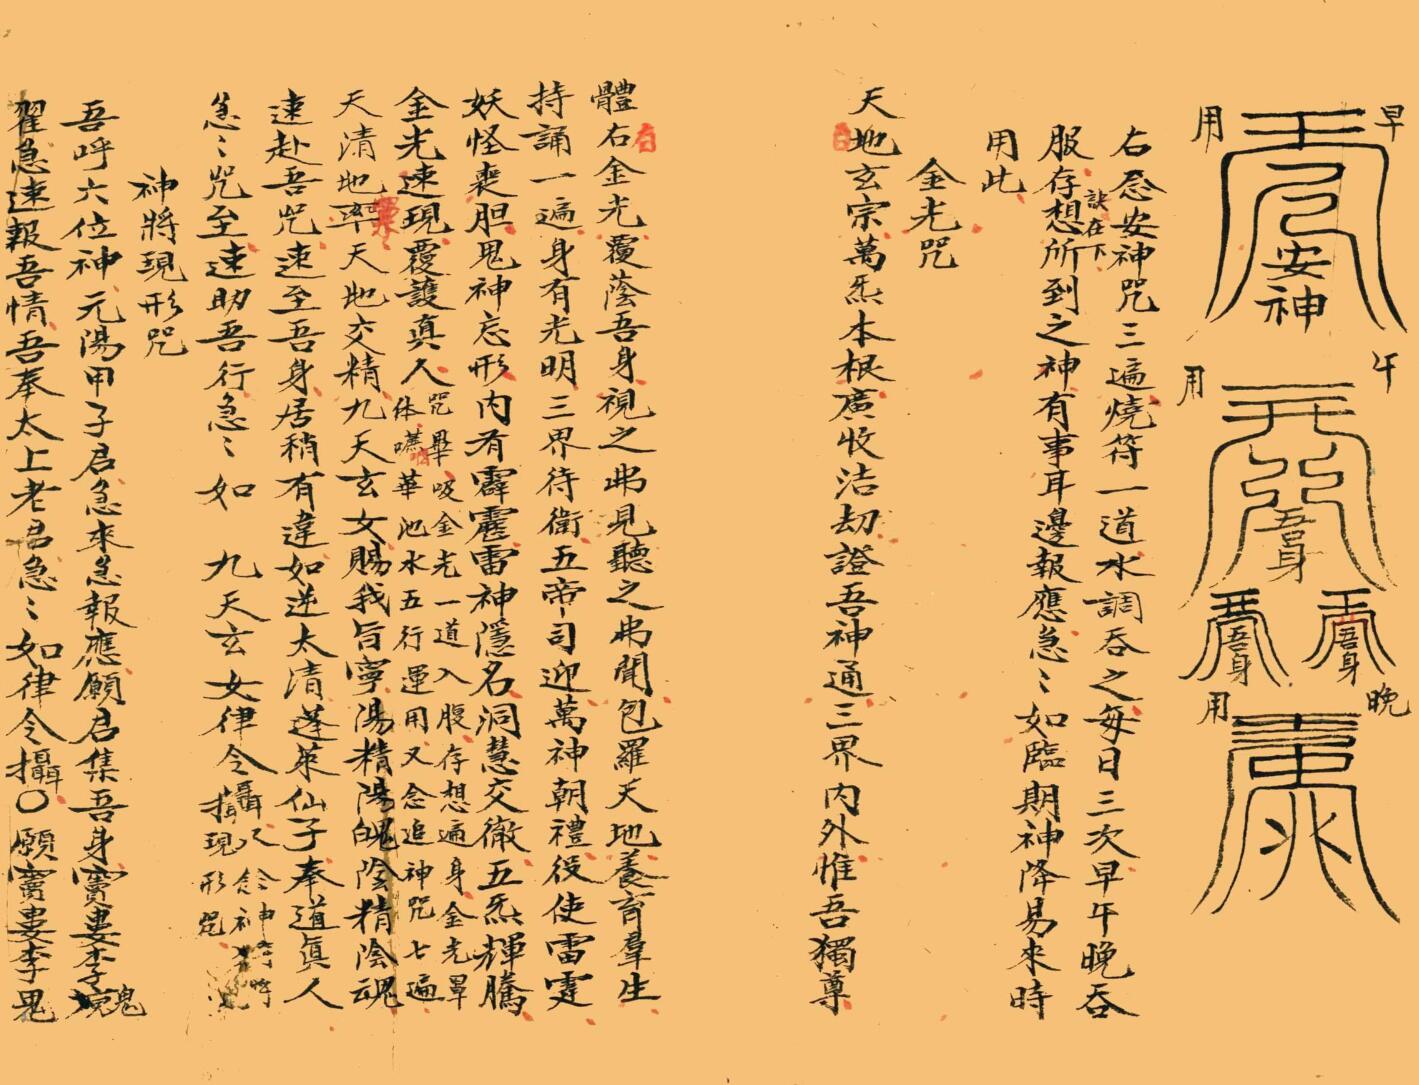 早用
安神
午用
吾身
吾身
吾身
晚用
右念安神咒三遍燒符一道水調吞之每日三次早午晚吞
服存想所到之神有事耳邊報應急〻如臨期神降易來時
訣在下
用此
金光咒
天地玄宗萬炁本根廣收浩劫證吾神通三界內外惟吾獨尊
體右金光覆蔭吾身視之弗見聽之弗聞包羅天地養育羣生
有
持誦一遍身有光明三界待衛五帝司迎萬神朝禮役使雷霆
妖怪喪胆鬼神忘形內有霹靂雷神隱名洞慧交徹五炁輝騰
金光速現覆護真人
咒畢吸金光一道入腹存想遍身金光罩
体嚥華池水五行運用又念追神咒七遍
天清地寧天地交精九天玄女賜我旨寧陽精陽魄陰精陰魂
速赴吾咒速至吾身居稍有違如逆太清蓬萊仙子奉道真人
急〻咒至速助吾行急〻如 九天玄女律令攝
又念神將
現形咒
神將現形咒
吾呼六位神元陽甲子君急來急報應願君集吾身竇婁李鬼
翟急速報吾情吾奉太上老君急〻如律令攝〇願竇婁李鬼